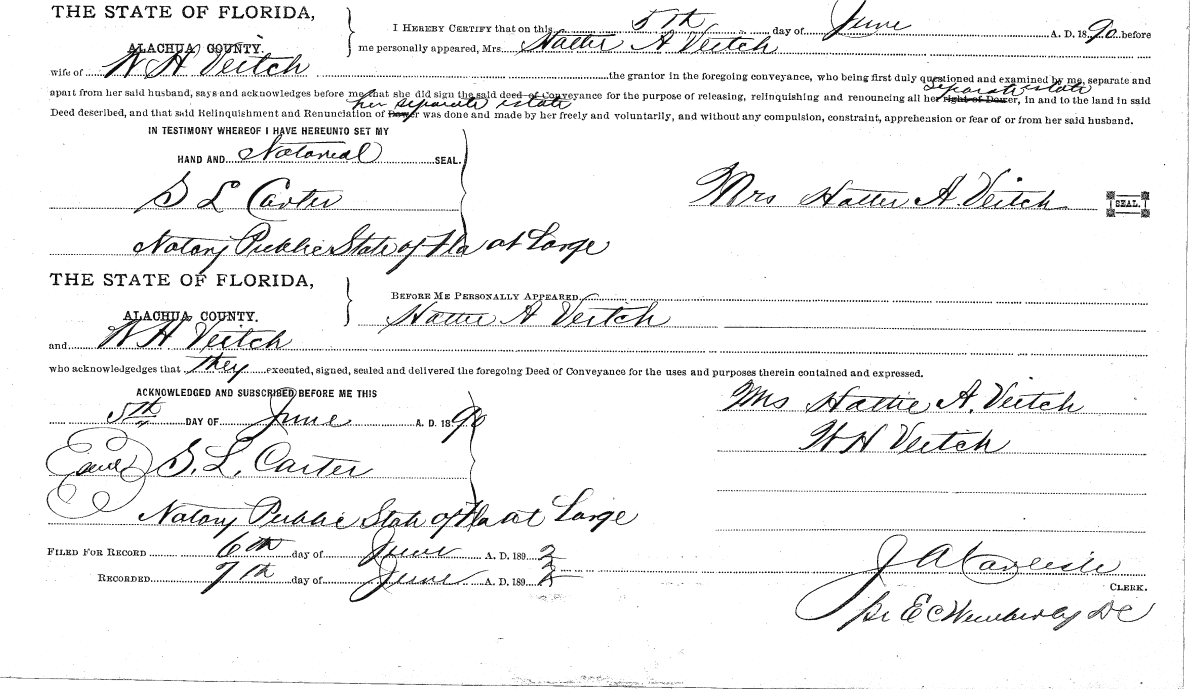 THE STATE OF FLORIDA,
ALACHUA COUNTY.
I HEREBY CERTIFY that on this 5th day of June A. D. 1890 before
me personally appeared, Mrs. Hattie A Veitch
wife of W H Veitch the grantor in the foregoing conveyance, who being first duly questioned and examined by me, separate and
separate estate
apart from her said husband, says and acknowledges before me that she did sign the said deed of Conveyance for the purpose of releasing, relinquishing and renouncing all her right of Dower, in and to the land in said
her separate estate
Deed described, and that said Relinquishment and Renunciation of Dower was done and made by her freely and voluntarily, and without any compulsion, constraint, apprehension or fear of or from her said husband.
IN TESTIMONY WHEREOF I HAVE HEREUNTO SET MY
HAND AND Notarial SEAL.
S L Carter
Mrs Hattie A. Veitch SEAL.
Notary Public State of Fla at Large
THE STATE OF FLORIDA,
ALACHUA COUNTY.
BEFORE ME PERSONALLY APPEARED
Hattie A Veitch
and W H. Veitch
who acknowledgedges that they executed, signed, sealed and delivered the foregoing Deed of Conveyance for the uses and purposes therein contained and expressed.
ACKNOWLEDGED AND SUBSCRIBED BEFORE ME THIS
5th DAY OF June A. D. 1890
Mrs Hattie A. Veitch
W H Veitch
Seal S. L. Carter
Notary Public State of Fla at Large
FILED FOR RECORD 6th day of June A. D. 1892
RECORDED 7th day of June A. D. 1892
J A Carlisle
CLERK.
pr E C Wimberly DC